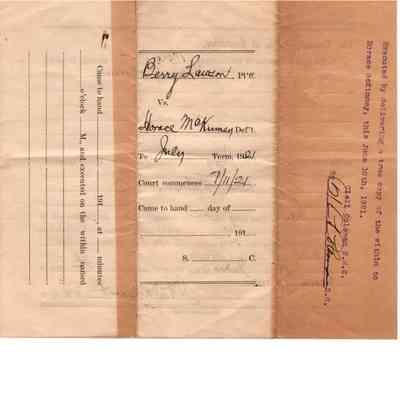 Came to hand
191 , at minutes
o'clock M., and executed on the within named
Berry Lawson, Pl'ff.
Vs.
Horace McKinney Def't.
To July Term, 1921
Court commences 7/11/21
Came to hand day of
, 191
S. C.
Executed by delivering a true copy of the within to
Horace McKinney, this June 30th, 1921.
S.W.C.
By
D.S.